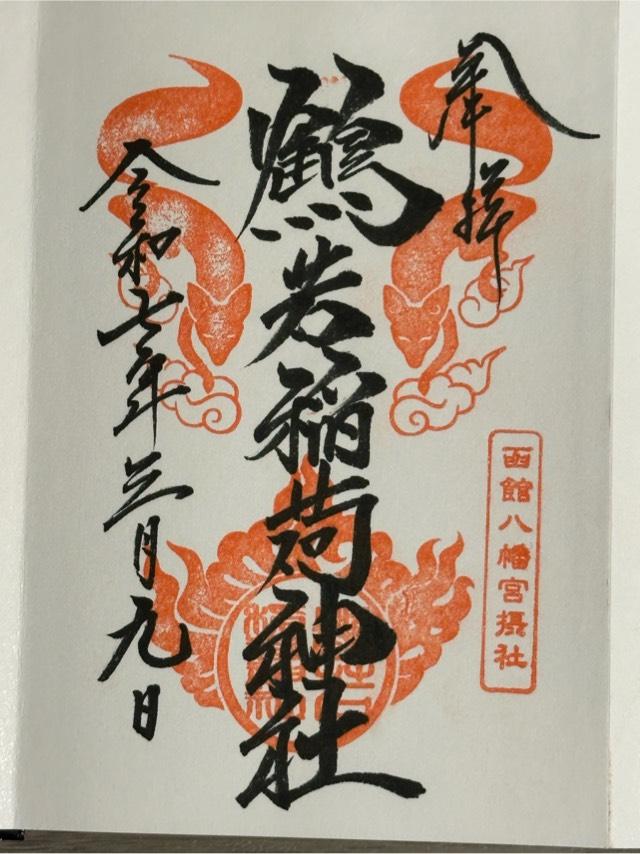 奉拝
函館八幡宮摂社
鶴若稲荷神社
令和七年三月九日